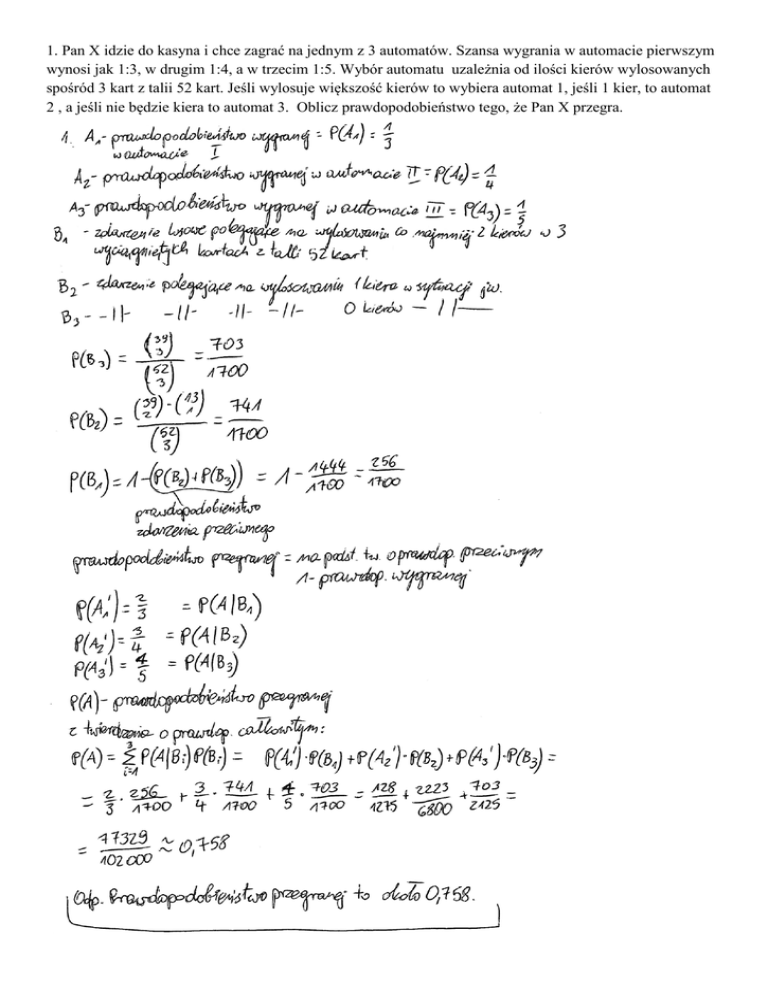 1. Pan X idzie do kasyna i chce zagrać na jednym z 3 automatów. Szansa wygrania w automacie pierwszym
wynosi jak 1:3, w drugim 1:4, a w trzecim 1:5. Wybór automatu uzależnia od ilości kierów wylosowanych
spośród 3 kart z talii 52 kart. Jeśli wylosuje większość kierów to wybiera automat 1, jeśli 1 kier, to automat
2 , a jeśli nie będzie kiera to automat 3. Oblicz prawdopodobieństwo tego, że Pan X przegra.
1. A₁- prawdopodobieństwo wygranej = P(A₁) = 1/3
w automacie I
A₂- prawdopodobieństwo wygranej w automacie II = P(A₂) = 1/4
A₃- prawdopodobieństwo wygranej w automacie III = P(A₃) = 1/5
B₁ - zdarzenie losowe polegające na wylosowaniu co najmniej 2 kierów w 3
wyciągniętych kartach z talii 52 kart.
B₂ - zdarzenie polegające na wylosowaniu 1 kiera w sytuacji jw.
B₃ - -||- -||- -||- -||- 0 kierów - || -
P(B₃) = (39 3)/(52 3) = 703/1700
P(B₂) = (39 2)·(13 1)/(52 3) = 741/1700
P(B₁) = 1-(P(B₂)+P(B₃)) = 1 - 1444/1700 = 256/1700
prawdopodobieństwo
zdarzenia przeciwnego
prawdopodobieństwo przegranej = na podst. tw. o prawdop. przeciwnym
1- prawdop. wygranej
P(A₁') = 2/3 = P(A|B₁)
P(A₂') = 3/4 = P(A|B₂)
P(A₃') = 4/5 = P(A|B₃)
P(A)- prawdopodobieństwo przegranej
z twierdzenia o prawdop. całkowitym:
P(A) = 3 Σ i=1 P(A|Bᵢ)P(Bᵢ) = P(A₁')·P(B₁) + P(A₂')·P(B₂) + P(A₃')·P(B₃) =
= 2/3 · 256/1700 + 3/4 · 741/1700 + 4/5 · 703/1700 = 128/1275 + 2223/6800 + 703/2125 =
= 77329/102000 ≈ 0,758
Odp. Prawdopodobieństwo przegranej to około 0,758.